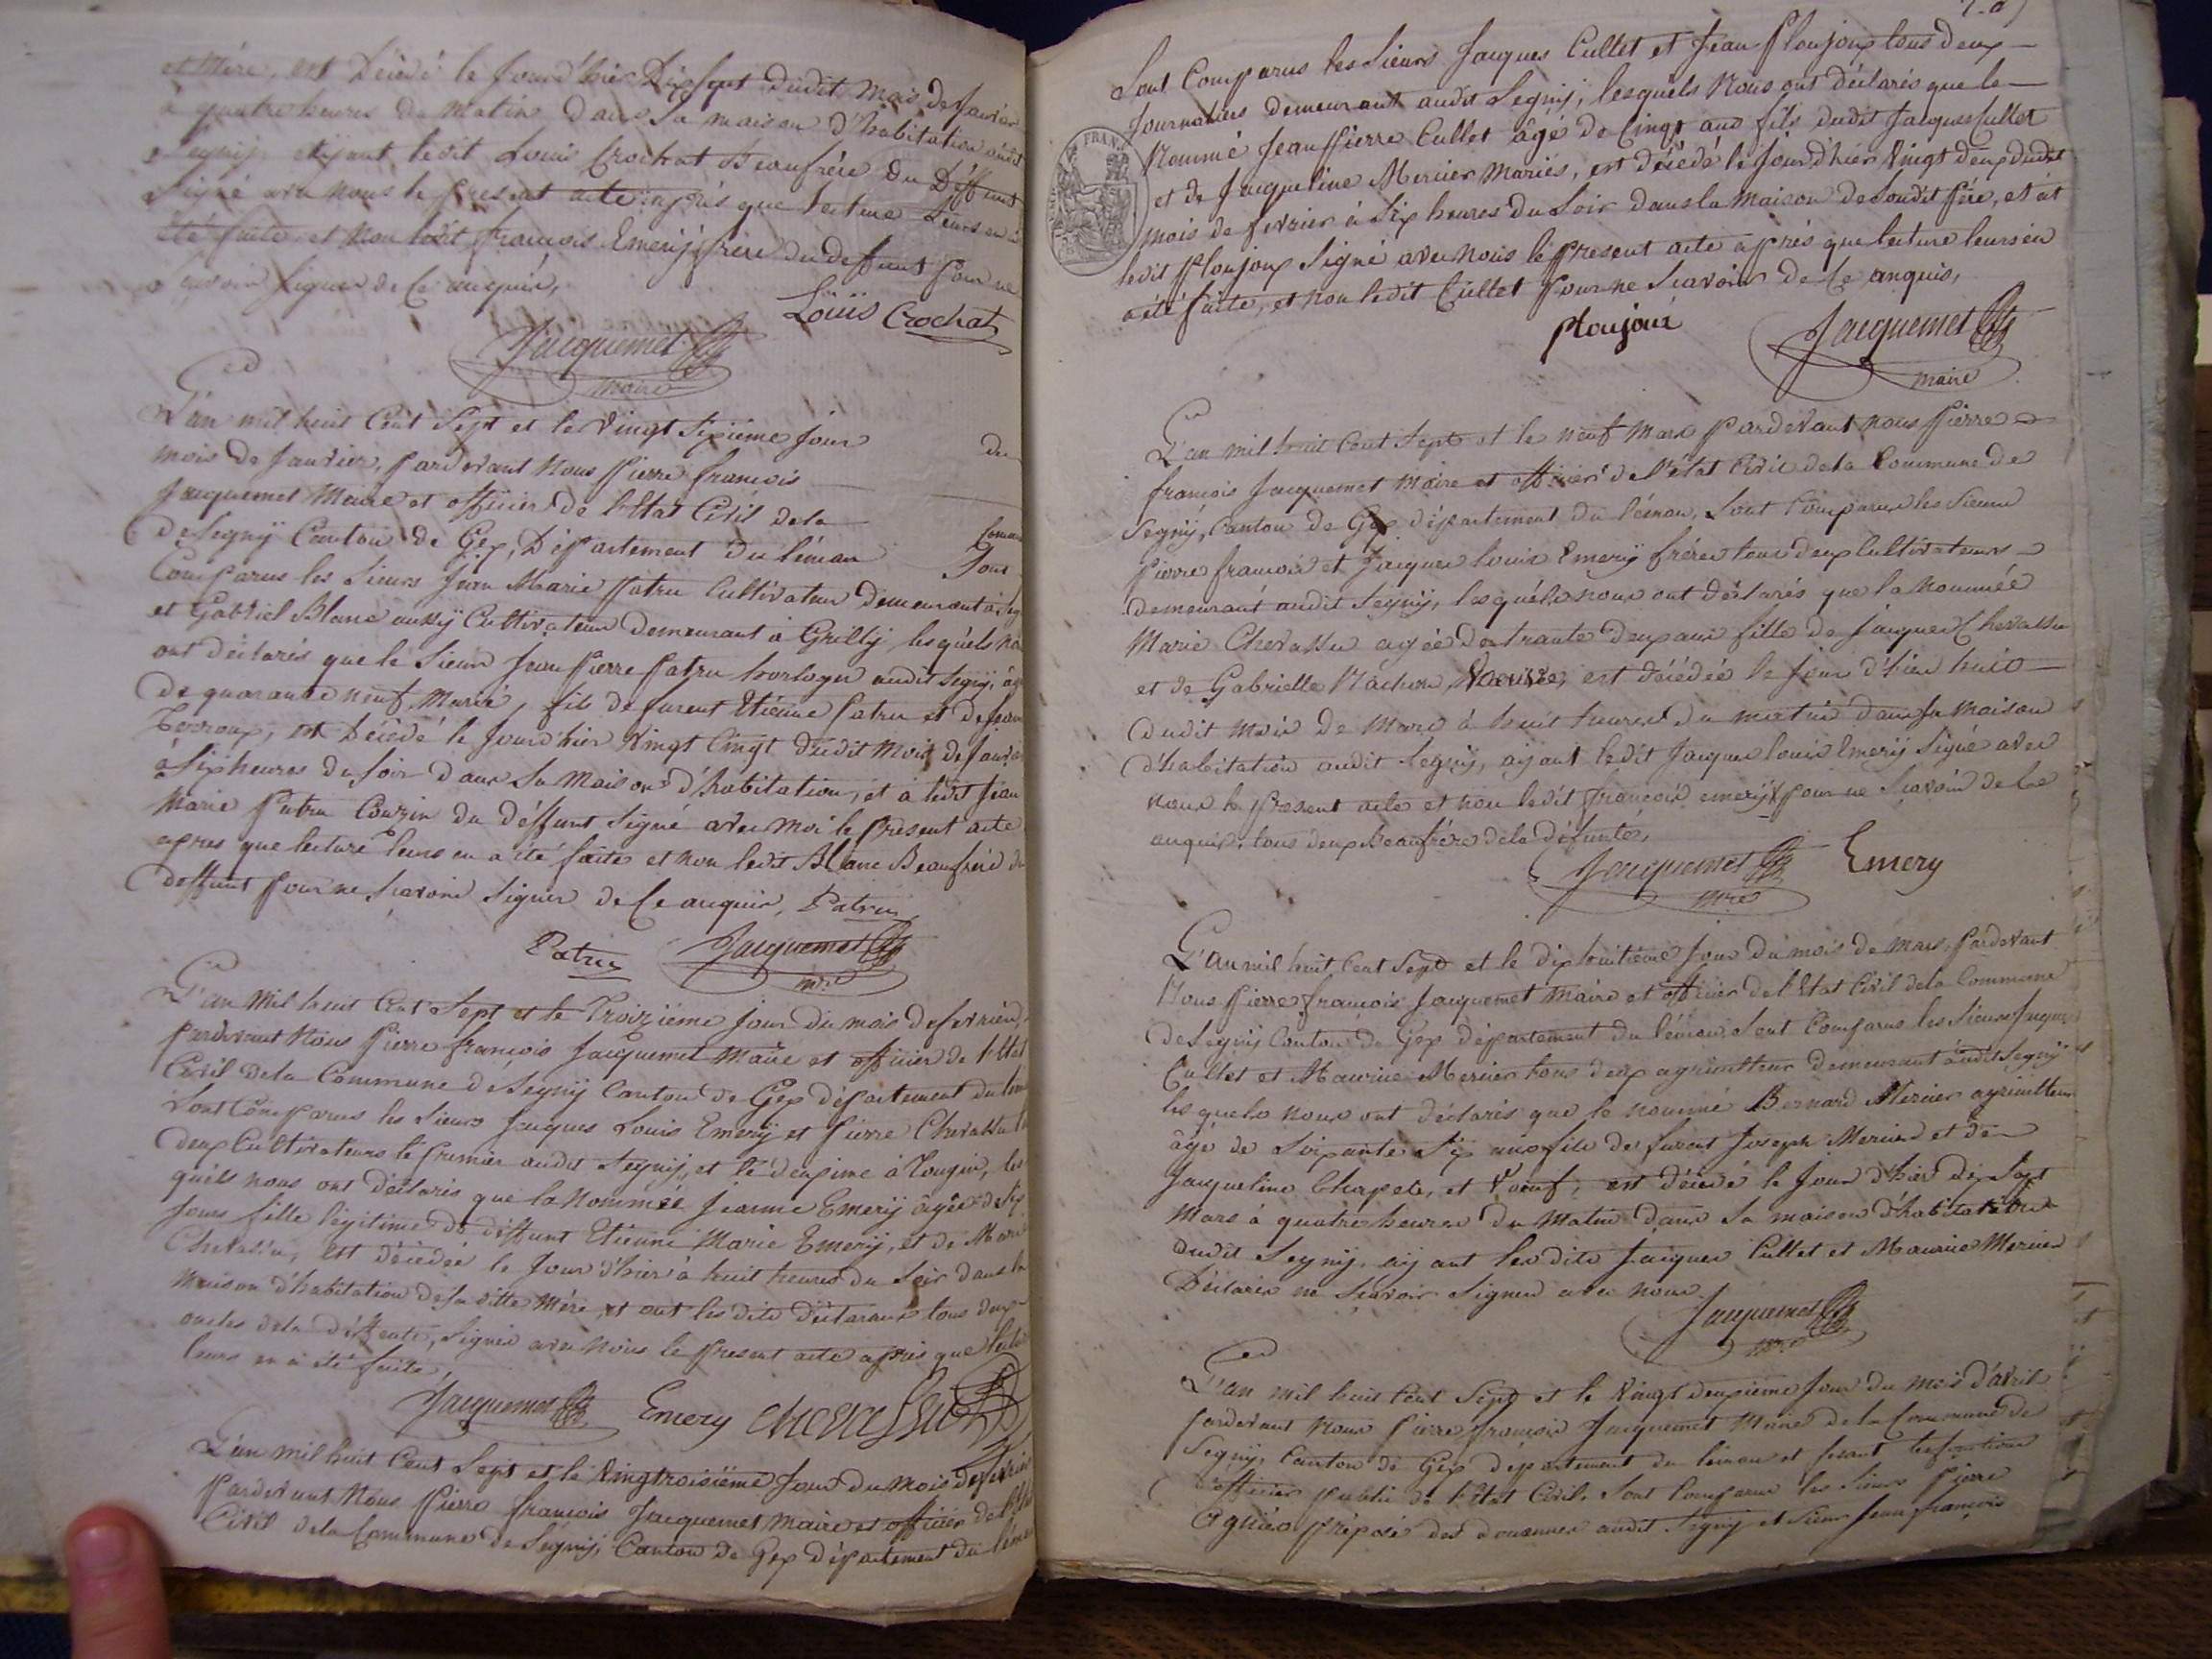 et Mère, est Décédé le Jourd'hier Dix Sept dudit Mois de Janvier
à quatre heures du Matin dans Sa maison d'habitation audit
Segnÿ. et ayant ledit Louis Crochat Beaufrère du Déffunt
Signé avec nous le présent acte après que lecture Leurs en a
été faite, et non ledit françois Emerÿ frère du deffunt pour ne
Savoir Signer de Ce anquis,
Loüis Crochat
Jacquemet
maire
L'an mil huit Cent Sept et le Vingt Sixième Jour du
mois de Janvier, Pardevant Nous Pierre françois
Jacquemet Maire et officier de l'Etat Civil de la Commune
de Segnÿ Canton de Gex, Département du léman Sont
Comparus les Sieurs Jean Marie Patru Cultivateur demeurant à Segnÿ
et Gabriel Blanc aussÿ Cultivateur Demeurant à Grillÿ, lesquéls nous
ont déclarés que le Sieur Jean Pierre Patru horloger audit Segnÿ, âgé
de quarante neuf Marié, fils de furent Etienne Patru et de Jeanne
Perroux, est Décédé le Jourd'hier Vingt Cinqt dudit Mois de Janvier
à Six heures du Soir dans Sa Maison d'habitation, et a ledit Jean
Marie Patru Couzin du déffunt Signé avec moi le présent acte
apres que lecture leurs en a été faite et non ledit Blanc Beaufrère du
deffunt pour ne Scavoire Signer de Ce anquis, Patru
Patru Jacquemet
mre
L'an Mil huit Cent Sept et le Troizième jour du mois de fevrier,
Pardevant Nous Pierre françois Jacquemet Maire et officier de l'Etat
Civil de la Commune de Segnÿ Canton de Gex département du léman
Sont Comparus les Sieurs Jacques Louis Emerÿ et Pierre Chevassu tous
deux Cultivateurs le premier audit Segnÿ, et le deuxime à Tougin, les
quéls nous ont déclarés que la Nommée Jeanne Emerÿ âgée de Six
Jours fille légitime de déffunt Etienne Marie Emerÿ, et de Marie
Chevassu, est décédée le Jour d'hier à huit heures du Soir dans la
maison d'habitation de Sa ditte Mére et ont les dits déclarants tous deux
oncles de la déffunte, Signés avec Nous le présent acte après que lecture
leurs en a été faite,
Jacquemet Emery chevassu
L'an mil huit Cent Sept et le Vingtroisième Jour du Mois de fevrier
Pardevant Nous Pierre françois Jacquemet maire et officier de l'Etat
Civil de la Commune de Segnÿ, Canton de Gex département du léman
Sont Comparus les Sieurs Jacques Cullet et Jean Ploujoux tous deux
Journaliers demeurant audit Segnÿ, lesquéls Nous ont déclarés que le
Nommé Jean Pierre Cullet âgé de Cinqt ans fils dudit Jacques Cullet
et de Jacqueline Mercier Mariés, est décédé le Jourd'hier Vingt deux dudit
mois de fevrier à Six heures du Soir dans la Maison de Soudit Père, et at
ledit Ploujoux Signé avec nous le présent acte après que lecture leurs en
a été faite, et non ledit Cullet pour ne Scavoir de Ce anquis,
Ploujoux Jacquemet
maire
L'an mil huit Cent Sept et le neuf Mars Pardevant nous Pierre
françois Jacquemet Maire et officier de l'état Civil de la Commune de
Segnÿ, Canton de Gex département du léman, Sont Comparus les Sieurs
Pierre françois et Jacques Louis Emerÿ frères tous deux Cultivateurs
demeurant audit Segnÿ, lesquéls nous ont déclarés que la Nommée
Marie Chevassu agée de trante deux ans fille de Jacques Chevassu
et de Gabrielle Machon, Veuve, est décédée le Jour d'hier huit
dudit Mois de Mars à huit heures du matin dans Sa Maison
d'habitation audit Segnÿ, aÿant ledit Jacques Louis Emerÿ Signé avec
nous le présent acte et non ledit françois emerÿ pour ne Scavoir de Ce
anquis, tous deux Beaufrère de la défunte,
Jacquemet Emery
mre
L'an mil huit Cent Sept et le dix huitième Jour du mois de Mars, Pardevant
Nous Pierre françois Jacquemet Maire et officier de l'Etat Civil de la Commune
de Segnÿ Canton de Gex département du léman Sont Comparus les Sieurs Jacques
Cullet et Maurice Mercier tous deux agriculteur demeurant audit Segnÿ
lesquels nous ont déclarés que le nommé Bernard Mercier agriculteur
âgé de Soixante Six ans fils de furent Joseph Mercier et de
Jacqueline Chapete, et Veuf, est décédé le Jour d'hier dix Sept
Mars à quatre heures du Matin dans Sa maison d'habitation
dudit Segnÿ, aÿant les dits Jacques Cullet et Maurice Mercier
Déclarés ne Scavoir Signer avec nous
Jacquemet
mre
L'an mil huit Cent Sept et le Vingt deuxième Jour du mois d'avril
pardevant nous Pierre françois Jacquemet Maire de la Commune de
Segnÿ, Canton de Gex département du léman et fesant les fonctions
d'officier public de l'Etat Civil. Sont Comparus les Sieurs Pierre
Agnier préposé des douannes audit Segnÿ et Sieur Jean françois